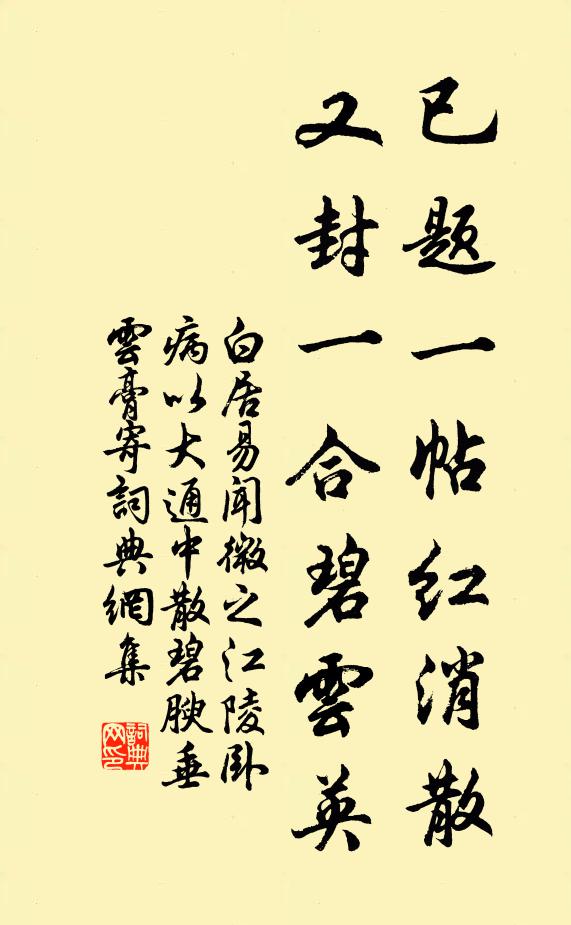 已题一帖红消散
又封一合碧雲英
白居易闻微之江陵卧
病以大通中散碧腴垂
雲膏寄詞典網集
詞典
网印